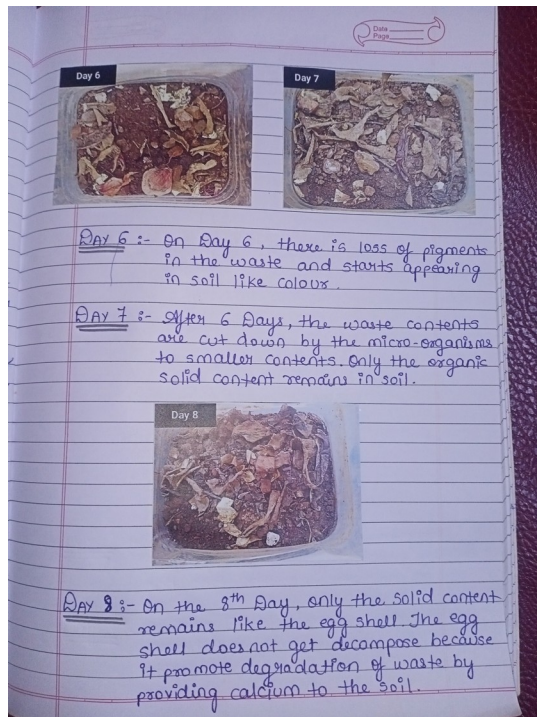 Date
Page
Day 6
Day 7
DAY 6 :- On Day 6, there is loss of pigments
in the waste and starts appearing
in soil like colour.
DAY 7 :- After 6 Days, the waste contents
are cut down by the micro-organisms
to smaller contents. Only the organic
solid content remains in soil.
Day 8
DAY 8 :- On the 8th Day, only the solid content
remains like the egg shell. The egg
shell does not get decompose because
it promote degradation of waste by
providing calcium to the soil.